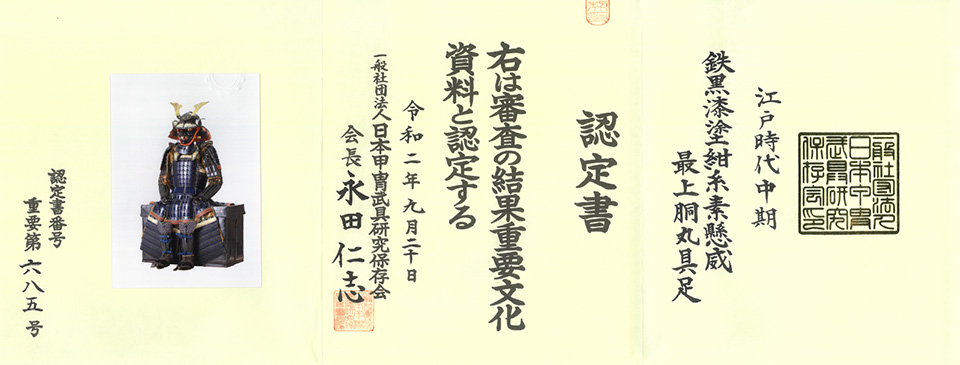 一般社団法人
日本甲冑
武具研究
保存会印
江戸時代中期
鉄黒漆塗紺糸素懸威
最上胴丸具足
認定書
右は審査の結果重要文化
資料と認定する
令和二年九月二十日
一般社団法人日本甲冑武具研究保存会
会長 永田仁志
認定書番号
重要第六八五号